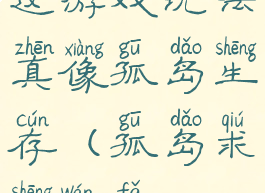 这游戏玩法
zhēn xiàng gū dǎo shēng
真像孤岛生
cún gū dǎo qiú
存（孤岛求
shēng wán fǎ